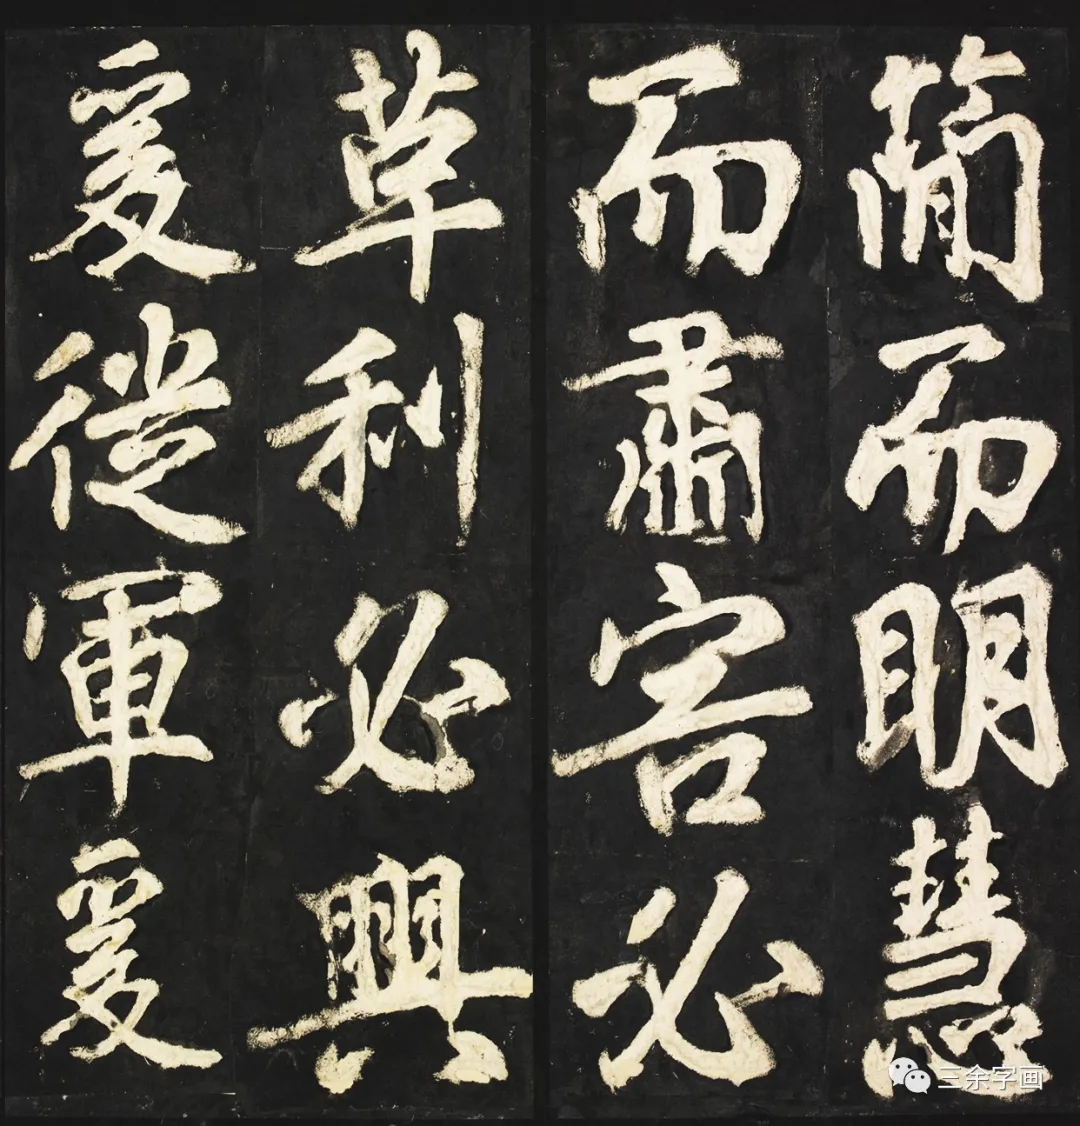 簡而明慧
而肅害必
革利必興
爰從軍爰
三余字画